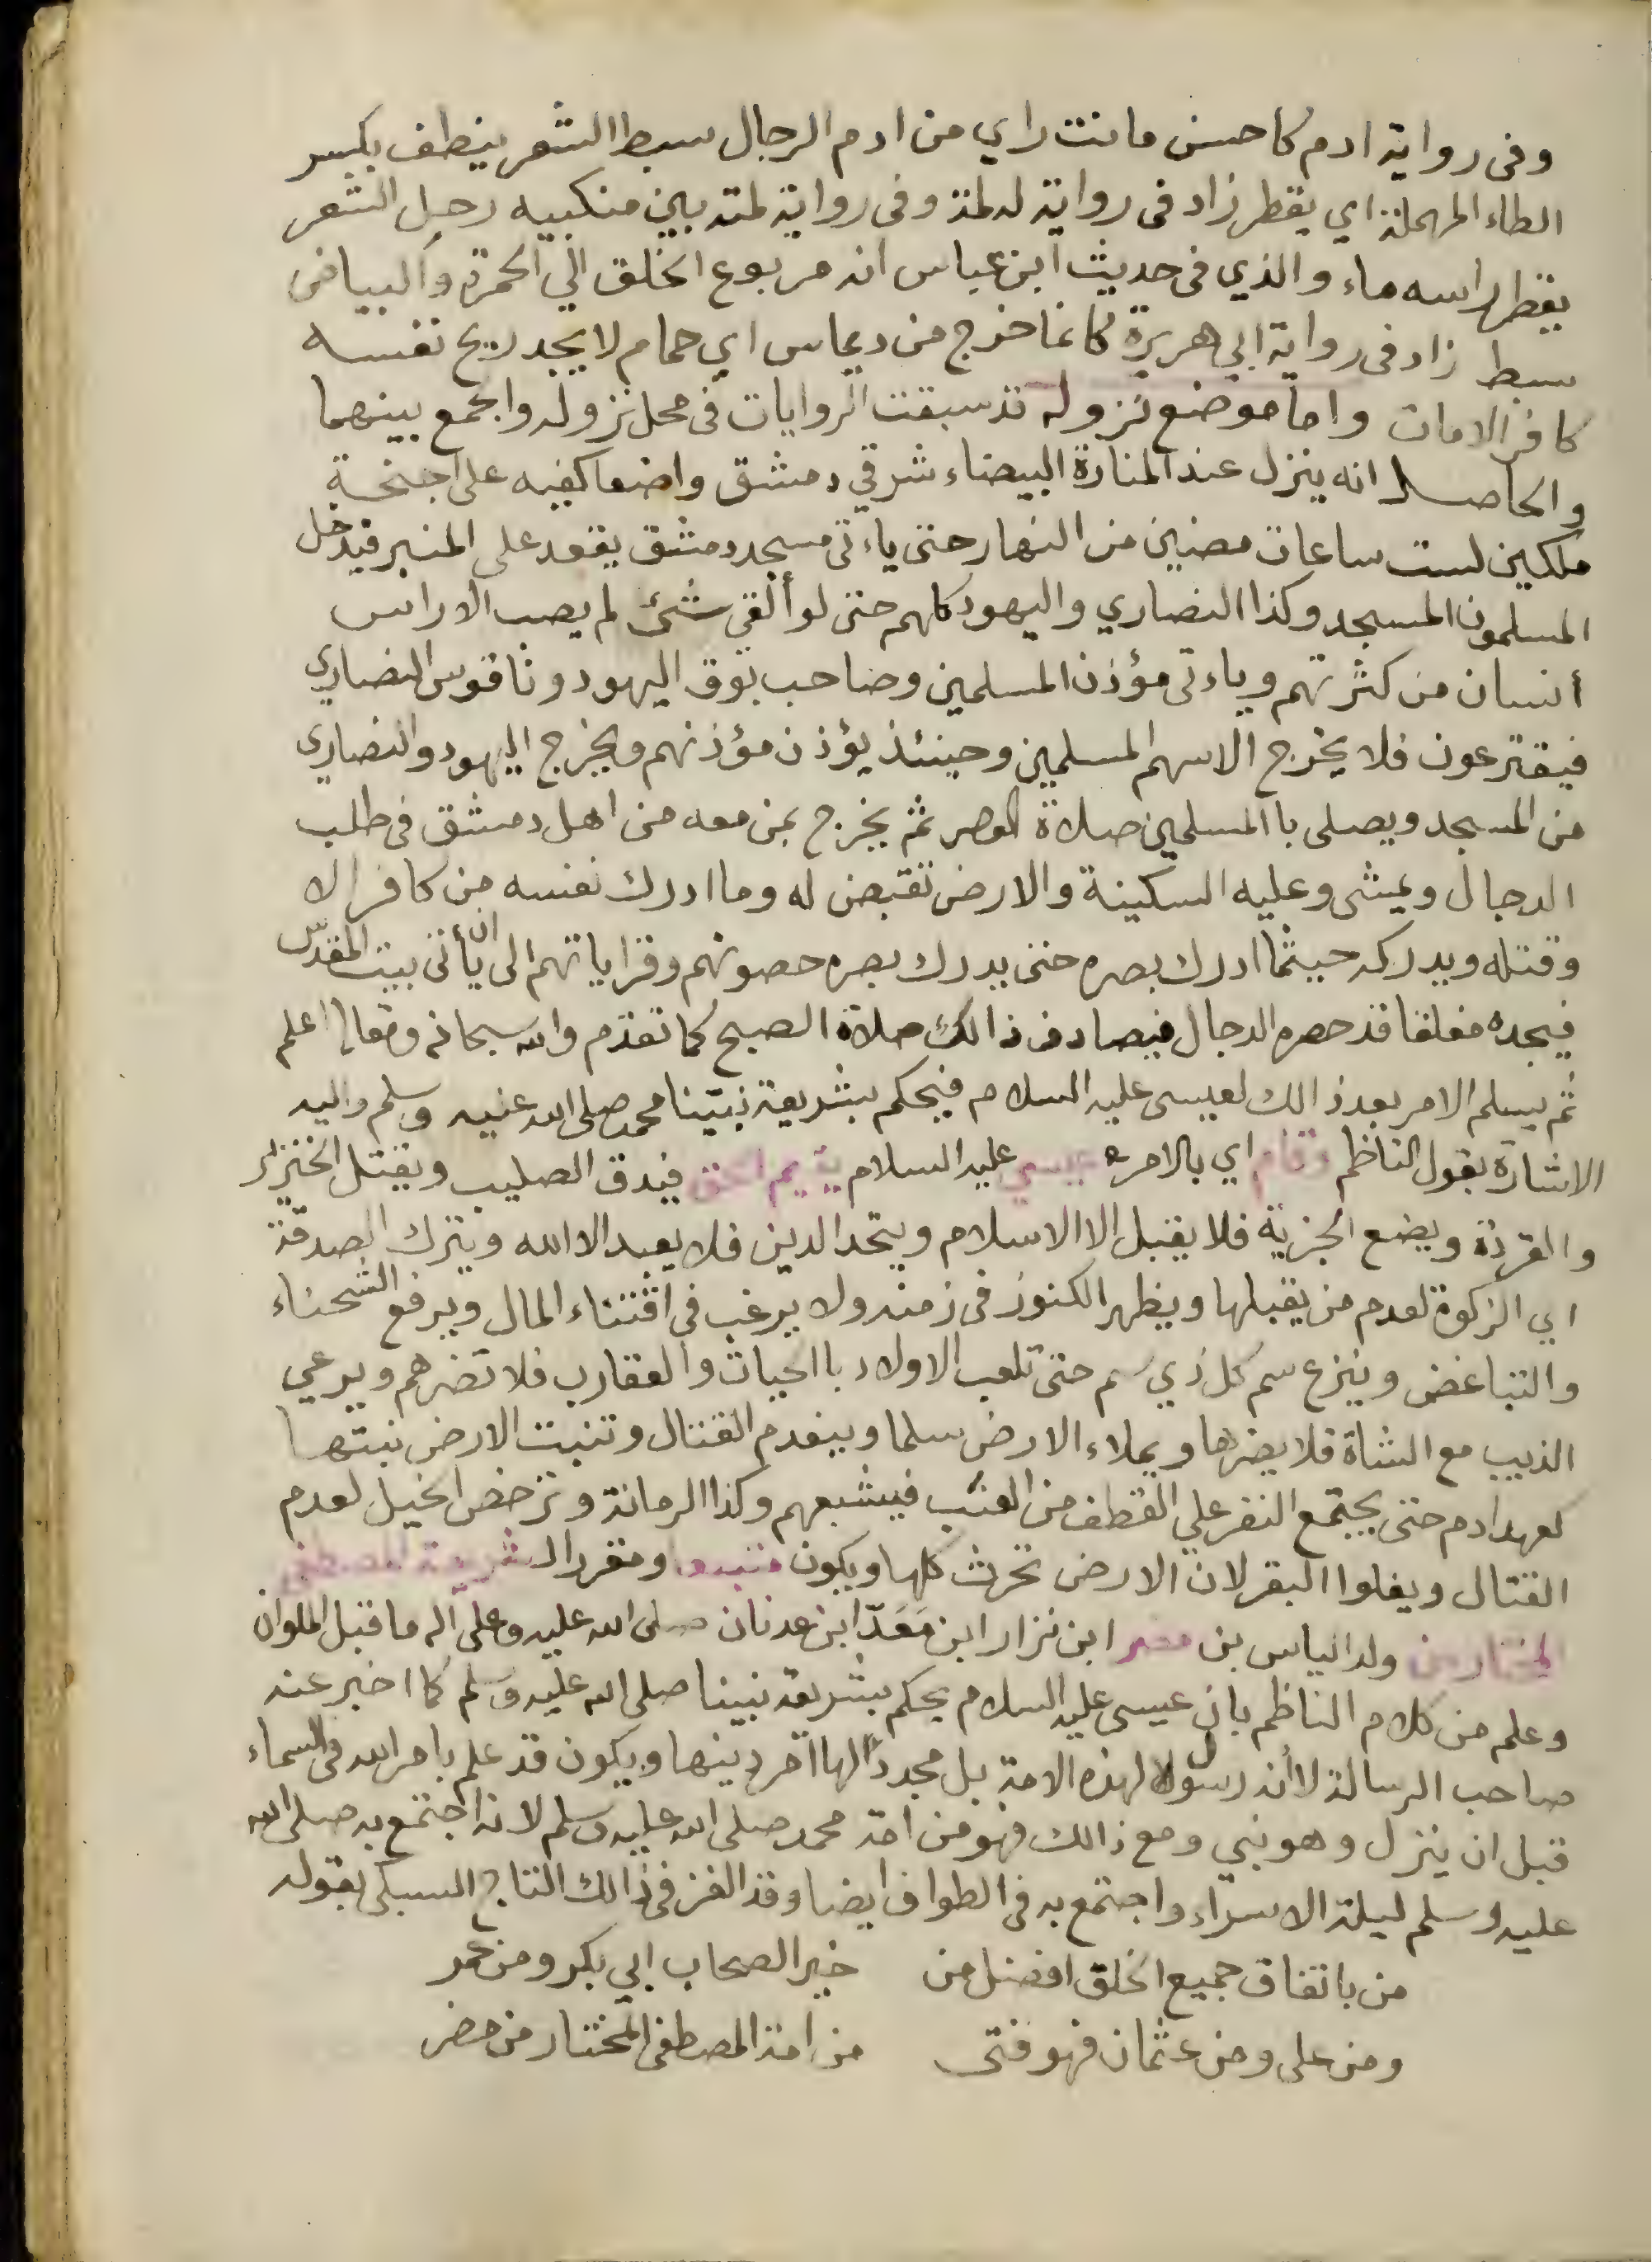 وفى رواية ادم كاحسن ما انت راي من ادم الرجال سبط الشعر ينطف بكسر
الطاء المهملة اي يقطر زاد فى رواية له لمة وفى رواية لمته بين منكبيه رجل الشعر
يقطر راسه ماء والذي فى حديث ابن عباس انه مربوع الخلق الي الحمرة والبياض
سبط زاد فى رواية ابي هريرة كانما خرج من ديماس اي حمام لا يجد ريح نفسه
كافر الا مات واما موضع نزوله قد سبقت الروايات فى محل نزوله والجمع بينهما
والحاصل انه ينزل عند المنارة البيضاء شرقي دمشق واضعا كفيه على اجنحة
ملكين لست ساعات مضين من النهار حتى ياءتى مسجد دمشق يقعد على المنبر فيدخل
المسلمون المسجد وكذا النصاري واليهود كلهم حتى لو ألقي شئ لم يصب الا راس
أنسان من كثرتهم وياءتى مؤذن المسلمين وصاحب بوق اليهود وناقوس النصاري
فيقترعون فلا يخرج الا سهم المسلمين وحينئذ يؤذن مؤذنهم ويخرج اليهود والنصاري
من المسجد ويصلى باالمسلمين صلاة العصر ثم يخرج بمن معه من اهل دمشق فى طلب
الدجال ويمشى وعليه السكينة والارض تقبض له وما ادرك نفسه من كافر الا
وقتله ويدركه حيثما ادرك بصره حتى يدرك بصره حصونهم وقراياتهم الى ان يأتى بيت المقدّس
فيجده مغلقا قد حصره الدجال فيصادف ذالك صلاة الصبح كما تقدّم والله سبحانه وتعالى اعلم
ثم يسلم الامر بعد ذالك لعيسى عليه السلام فيحكم بشريعة نبيّنا محمد صلى الله عليه وسلم واليه
الاشارة بقول الناظم وقام اي بالامر عيسي عليه السلام يقيم الحق فيدق الصليب ويقتل الخنزير
والقردة ويضع الجزية فلا يقبل الا الاسلام ويتحد الدين فلا يعبد الا الله ويترك الصدقة
اي الزكوة لعدم من يقبلها ويظهر الكنوز فى زمنه ولا يرغب فى اقتناء المال ويرفع الشحناء
والتباغض وينزع سم كل ذي سم حتى تلعب الاولاد باالحيات والعقارب فلا تضرهم ويرعي
الذيب مع الشاة فلا يضرها ويملاء الارض سلما وينعدم القتال وتنبت الارض نبتها
كعهد ادم حتى يجتمع النفر علي القطف من العنب فيشبعهم وكذا الرمانة وترخص الخيل لعدم
القتال ويغلوا البقر لان الارض تحرث كلها ويكون متبعا ومقررا لشريعة المصطفى
المختار من ولد الياس بن مضر ابن نزار ابن مَعَدّ ابن عدنان صلى الله عليه وعلى آله ما قبل الملوان
وعلم من كلام الناظم بان عيسى عليه السلام يحكم بشريعة نبينا صلى الله عليه وسلم كما اخبر عنه
صاحب الرسالة لا أنه رسول لهذه الامة بل مجددًا لها امر دينها ويكون قد علم بامر الله فى السماء
قبل ان ينزل وهو نبي ومع ذالك فهو من امة محمد صلى الله عليه وسلم لانه اجتمع به صلى الله
عليه وسلم ليلة الاسراء واجتمع به فى الطواف ايضا وقد الغز فى ذالك التاج السبكى بقوله
من باتفاق جميع الخلق افضل من خير الصحاب ابي بكر ومن عمر
ومن على ومن عثمان فهو فتى من امة المصطفى المختار من مضر